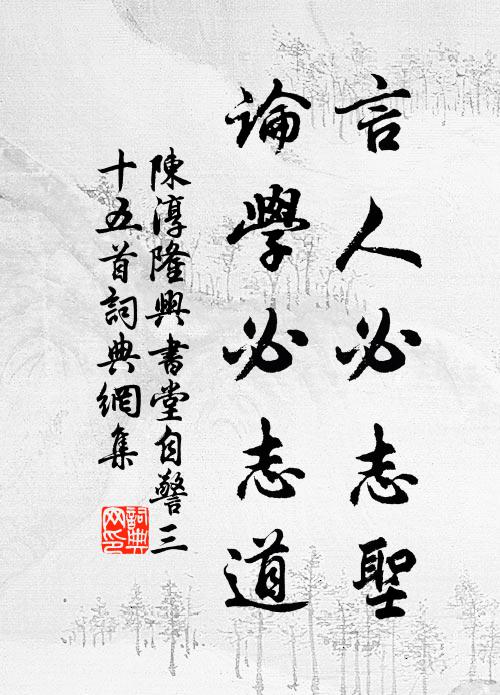 言人必志聖
論學必志道
陳淳隆興書堂自警三
十五首詞典網集
詞典
网印